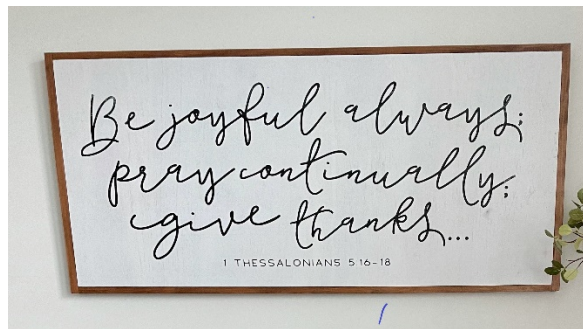 Be joyful always;
pray continually;
give thanks...
1 THESSALONIANS 5 16-18